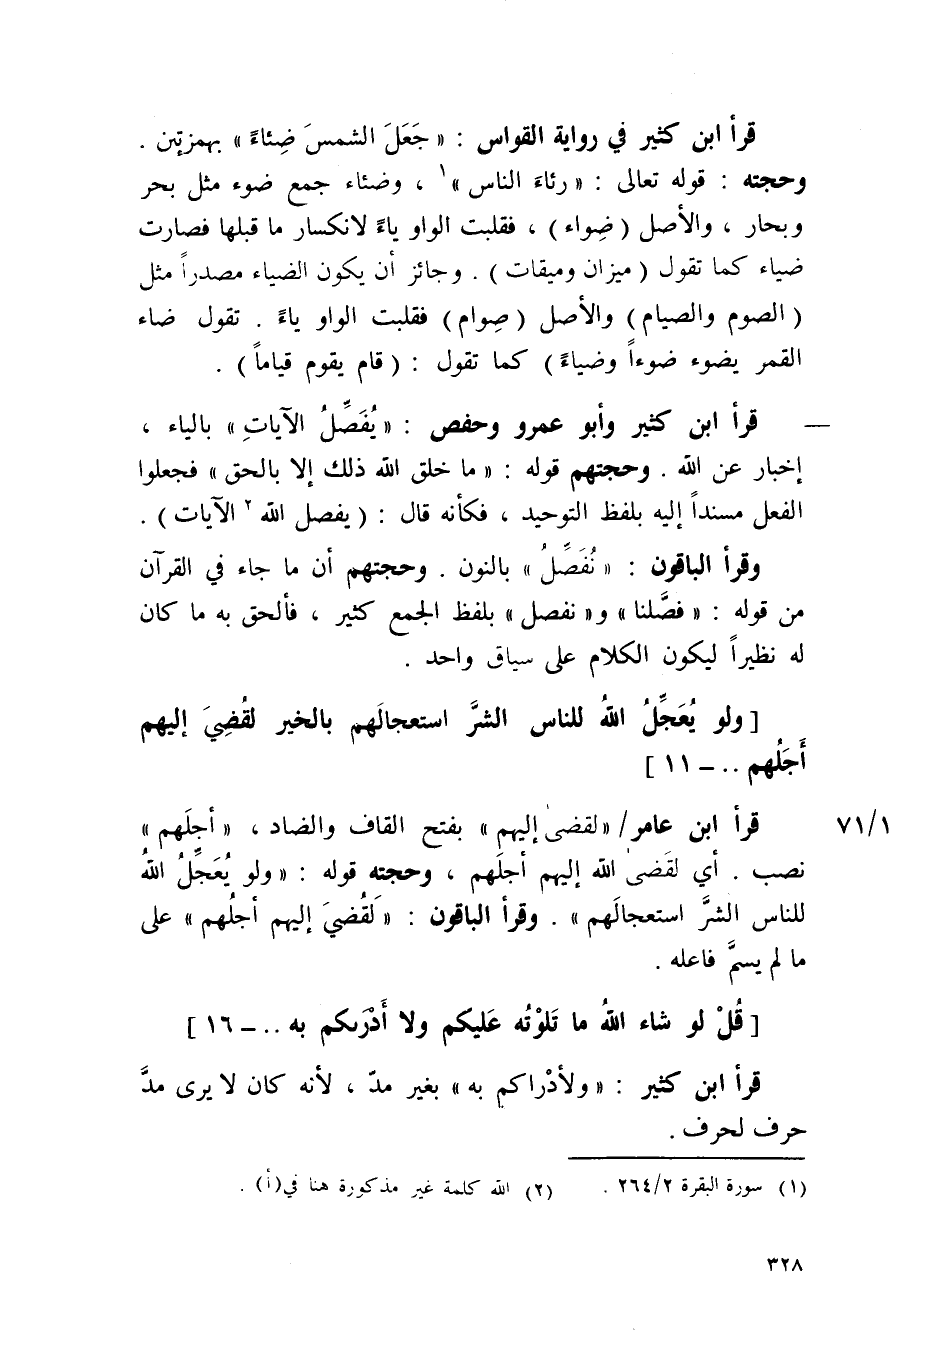 قرأ ابن كثير في رواية القواس : « جَعَلَ الشمسَ ضِئاءً » بهمزتين .
وحجته : قوله تعالى : « رئاءَ الناس »١ ، وضئاء جمع ضوء مثل بحر
وبحار ، والأصل ( ضِواء ) ، فقلبت الواو ياءً لانكسار ما قبلها فصارت
ضياء كما تقول ( ميزان وميقات ) . وجائز أن يكون الضياء مصدراً مثل
( الصوم والصيام ) والأصل ( صِوام ) فقلبت الواو ياءً . تقول ضاء
القمر يضوء ضوءاً وضياءً ) كما تقول : ( قام يقوم قياماً ) .
— قرأ ابن كثير وأبو عمرو وحفص : « يُفَصِّلُ الآياتِ » بالياء ،
إخبار عن الله . وحجتهم قوله : « ما خلق الله ذلك إلا بالحق » فجعلوا
الفعل مسنداً إليه بلفظ التوحيد ، فكأنه قال : ( يفصل الله ٢ الآيات ) .
وقرأ الباقون : « نُفَصِّلُ » بالنون . وحجتهم أن ما جاء في القرآن
من قوله : « فصَّلنا » و« نفصل » بلفظ الجمع كثير ، فألحق به ما كان
له نظيراً ليكون الكلام على سياق واحد .
[ ولو يُعَجِّلُ اللهُ للناس الشرَّ استعجالَهم بالخير لقُضِيَ إليهم
أَجَلُهم .. – ١١ ]
٧١/١ قرأ ابن عامر/ «لقضىٰ إليهم» بفتح القاف والضاد ، « أجلَهم »
نصب . أي لقَضىٰ الله إليهم أجلَهم ، وحجته قوله : « ولو يُعَجِّلُ اللهُ
للناس الشرَّ استعجالَهم » . وقرأ الباقون : « لَقُضيَ إليهم أجلُهم » على
ما لم يسمَّ فاعله .
[ قُلْ لو شاء اللهُ ما تَلَوْتُه عَليكم ولا أَدْرَىكم به .. – ١٦ ]
قرأ ابن كثير : « ولأدْراكم به » بغير مدّ ، لأنه كان لا يرى مدَّ
حرف لحرف .
(١) سورة البقرة ٢٦٤/٢ . (٢) الله كلمة غير مذكورة هنا في(أ) .
٣٢٨